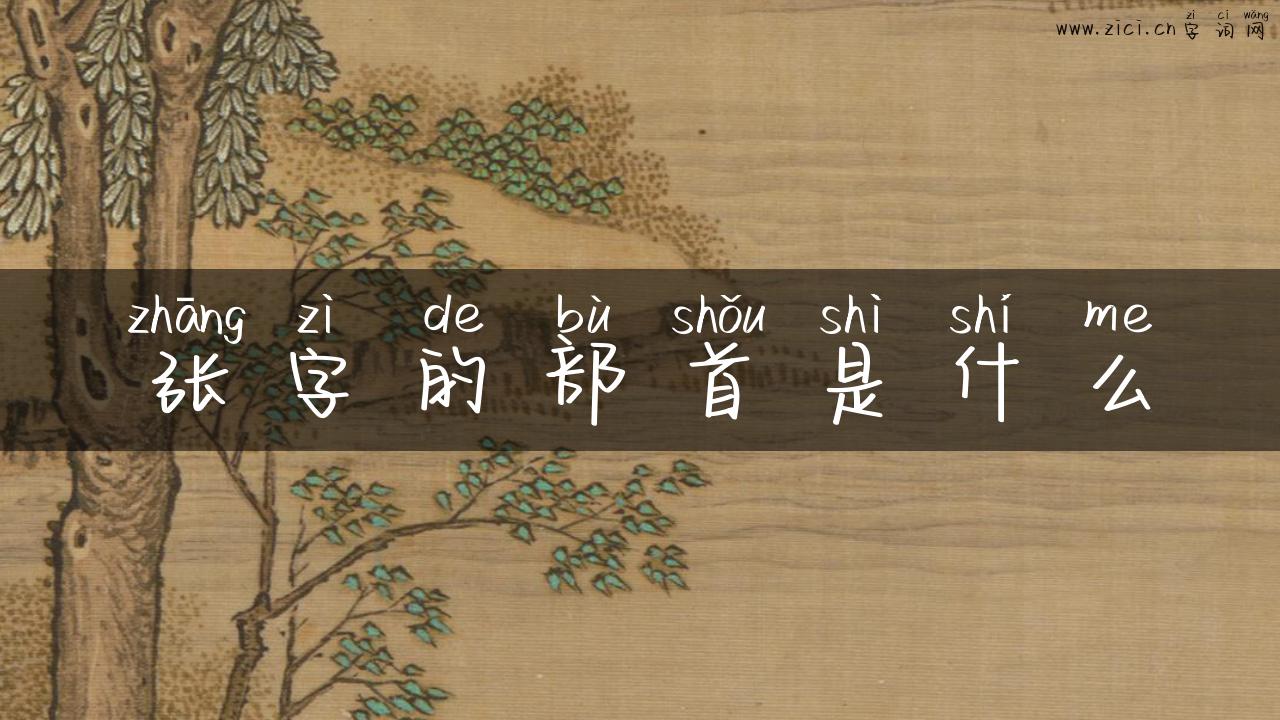 zì cí wǎng
www.zici.cn 字词网
zhāng zì de bù shǒu shì shí me
张字的部首是什么